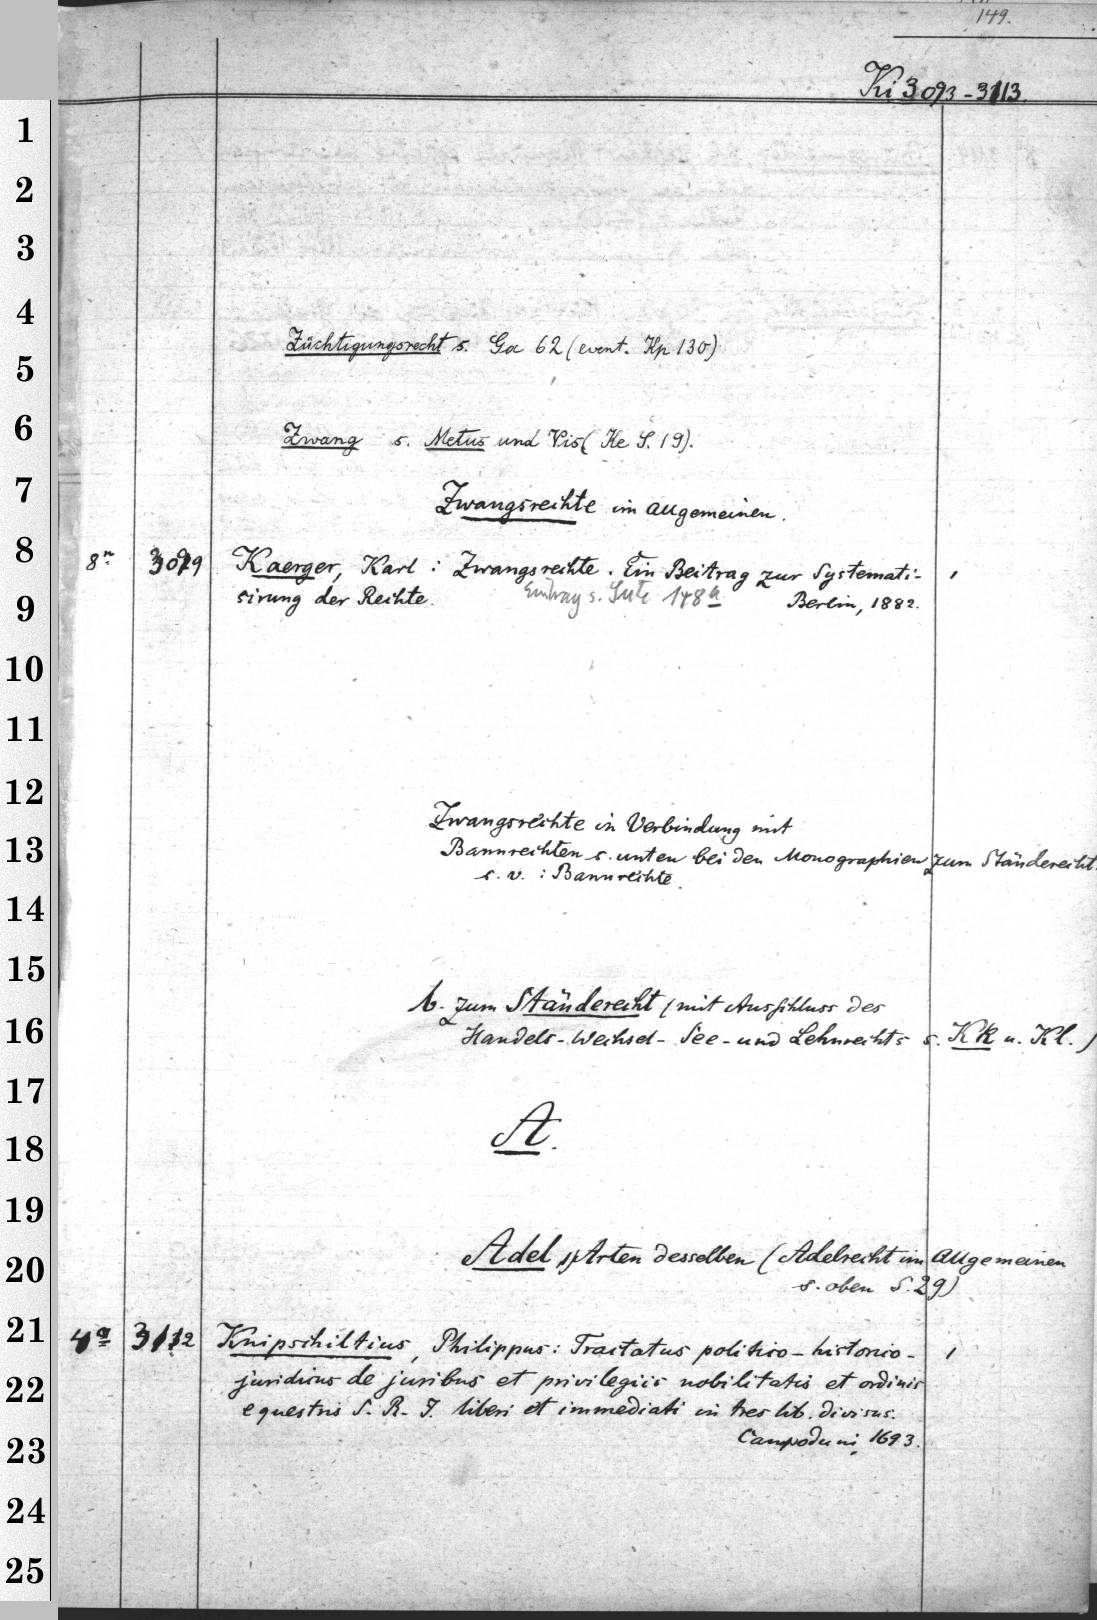 149.
Ki 3093-3113.
1
2
3
4
Züchtigungsrecht s. Ga 62 (event. Kp 130)
5
6
Zwang s. Metus und Vis (Ke S. 19).
7
Zwangsrechte im allgemeinen.
8
8° 3099 Kaerger, Karl: Zwangsrechte. Ein Beitrag zur Systemati-
9
sirung der Rechte. Eintrag s. Seite 148a Berlin, 1882.
10
11
12
Zwangsrechte in Verbindung mit
13
Bannrechten s. unten bei den Monographien zum Ständerecht.
s. v.: Bannrechte.
14
15
b. zum Ständerecht (mit Ausschluss des
16
Handels- Wechsel- See- und Lehnrechts s. Kk u. Kl.)
17
A.
18
19
Adel, Arten desselben (Adelrecht im Allgemeinen
20
s. oben S. 29)
21
4° 3112 Knipschiltius, Philippus: Tractatus politico-historico-
22
juridicus de juribus et privilegiis nobilitatis et ordinis
equestris S. R. I. liberi et immediati in tres lib. divisus.
23
Campoduni, 1693.
24
25